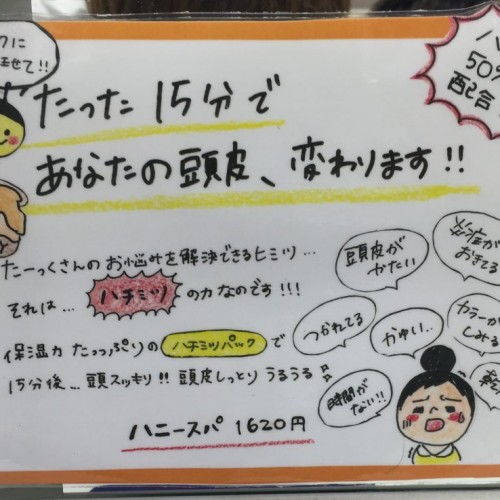 クに
ませて!!
ハ
50%
配合
たった15分で
あなたの頭皮、変わります!!
たーっくさんのお悩みを解決できるヒミツ…
それは… ハチミツ の力なのです!!!
保温力たっっぷりの ハチミツパック で
15分後…頭スッキリ!! 頭皮しっとりうるうる♪
ハニースパ 1620円
頭皮が
かたい
炎症が
おきてる
つかれてる
かゆい..
カラーが
しみる
時間が
ない!!
乾